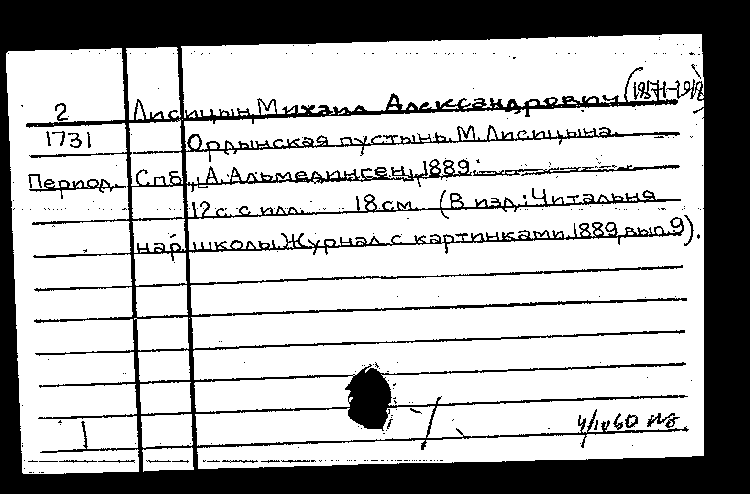 2 Лисицын, Михаил Александрович
1731 Ордынская пустынь. М. Лисицына.
Период. Спб., А. Альмединген, 1889.
12 с. с илл. 18 см. (В изд.: Читальня
нар. школы. Журнал с картинками. 1889, вып. 9).
1